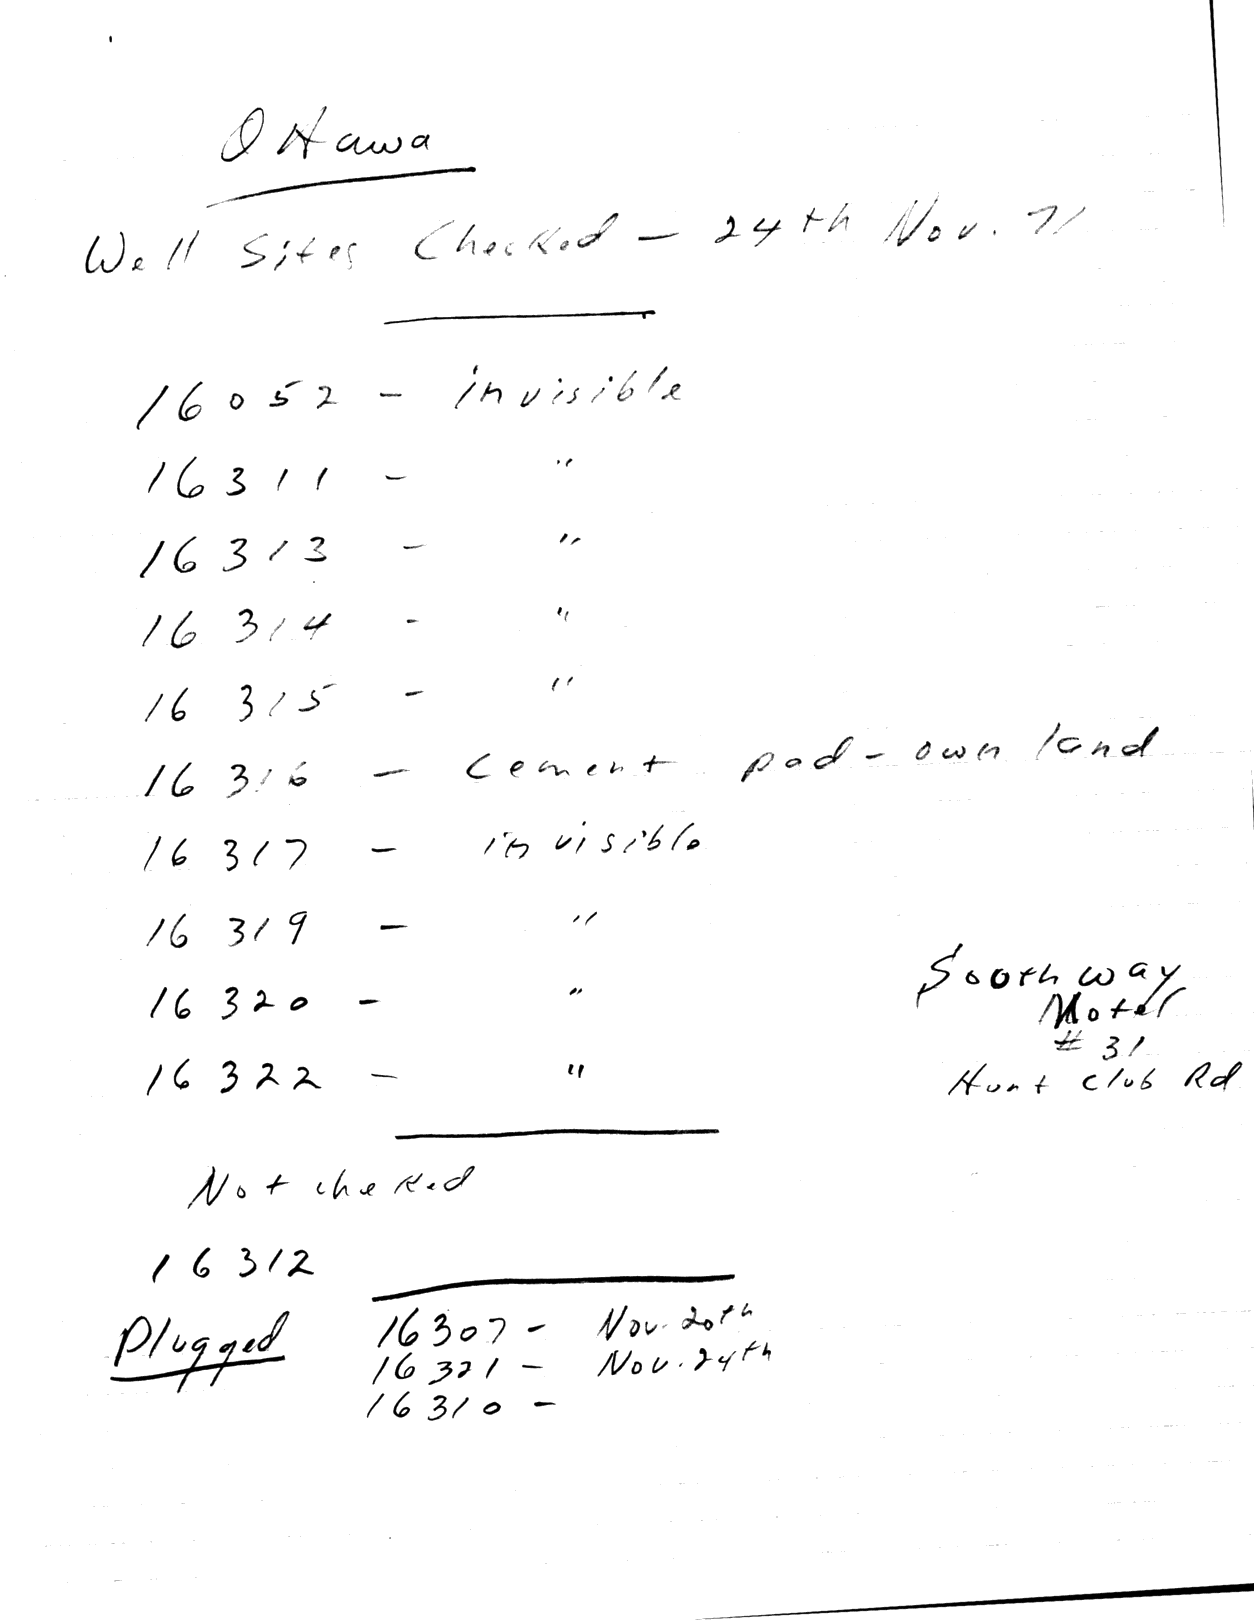 Ottawa
Well Sites Checked - 24th Nov. 71
16052 - invisible
16311 - "
16313 - "
16314 - "
16315 - "
16316 - cement pad - own land
16317 - invisible
16319 - "
16320 - "
16322 - "
Southway
Motel
# 31
Hunt Club Rd
Not checked
16312
Plugged
16307 - Nov. 20th
16321 - Nov. 24th
16310 -